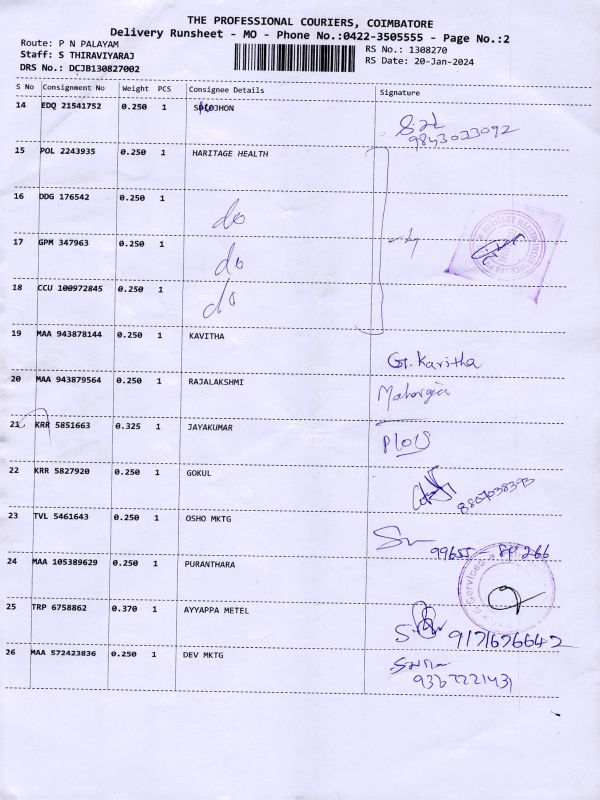 THE PROFESSIONAL COURIERS, COIMBATORE
Delivery Runsheet - MO - Phone No.:0422-3505555 - Page No.:2
Route: P N PALAYAM
RS No.: 1308270
Staff: S THIRAVIYARAJ
RS Date: 20-Jan-2024
DRS No.: DCJB130827002
S No Consignment No Weight PCS Consignee Details Signature
14 EDQ 21541752 0.250 1
9843033092
15 POL 2243935 0.250 1 HARITAGE HEALTH
16 DDG 176542 0.250 1 do
17 GPM 347963 0.250 1 do
18 CCU 100972845 0.250 1 do
19 MAA 943878144 0.250 1 KAVITHA G. Kavitha
20 MAA 943879564 0.250 1 RAJALAKSHMI
21 KRR 5851663 0.325 1 JAYAKUMAR
22 KRR 5827920 0.250 1 GOKUL 8807038393
23 TVL 5461643 0.250 1 OSHO MKTG
24 MAA 105389629 0.250 1 PURANTHARA
25 TRP 6758862 0.370 1 AYYAPPA METEL 9171676642
26 MAA 572423836 0.250 1 DEV MKTG
9367221431